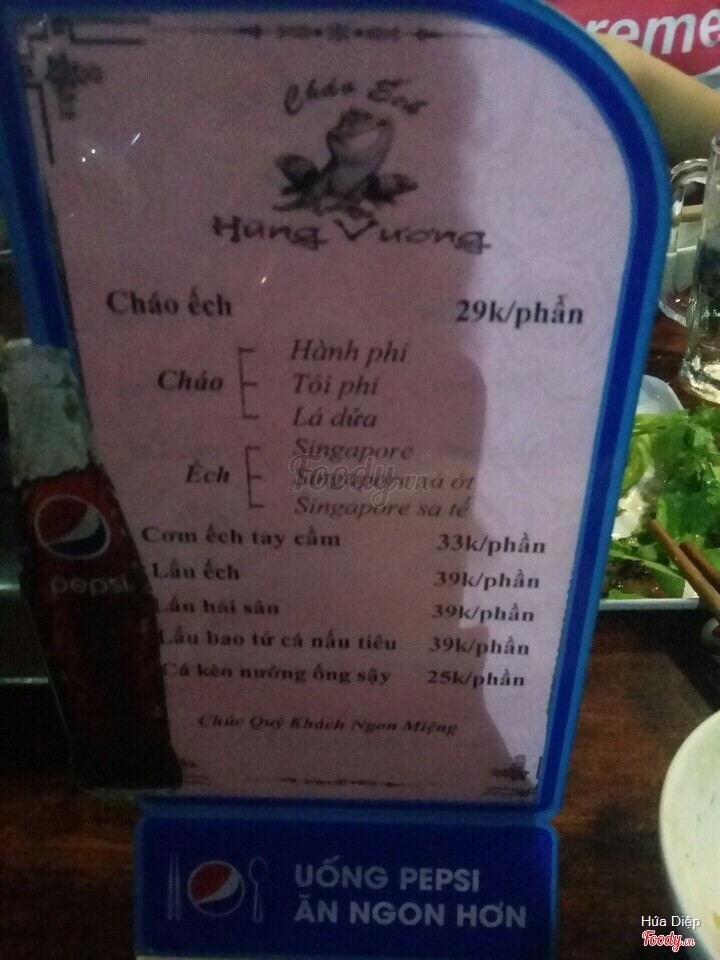 reme
Cháo Ếch
Hùng Vương
Cháo ếch 29k/phần
Cháo
Hành phi
Tỏi phi
Lá dứa
Ếch
Singapore
Singapore xả ớt
Singapore sa tế
Cơm ếch tay cầm 33k/phần
Lẩu ếch 39k/phần
Lẩu hải sản 39k/phần
Lẩu bao tử cá nấu tiêu 39k/phần
Cá kèo nướng ống sậy 25k/phần
Chúc Quý Khách Ngon Miệng
Foody.vn
pepsi
UỐNG PEPSI
ĂN NGON HƠN
Hứa Diệp
Foody.vn